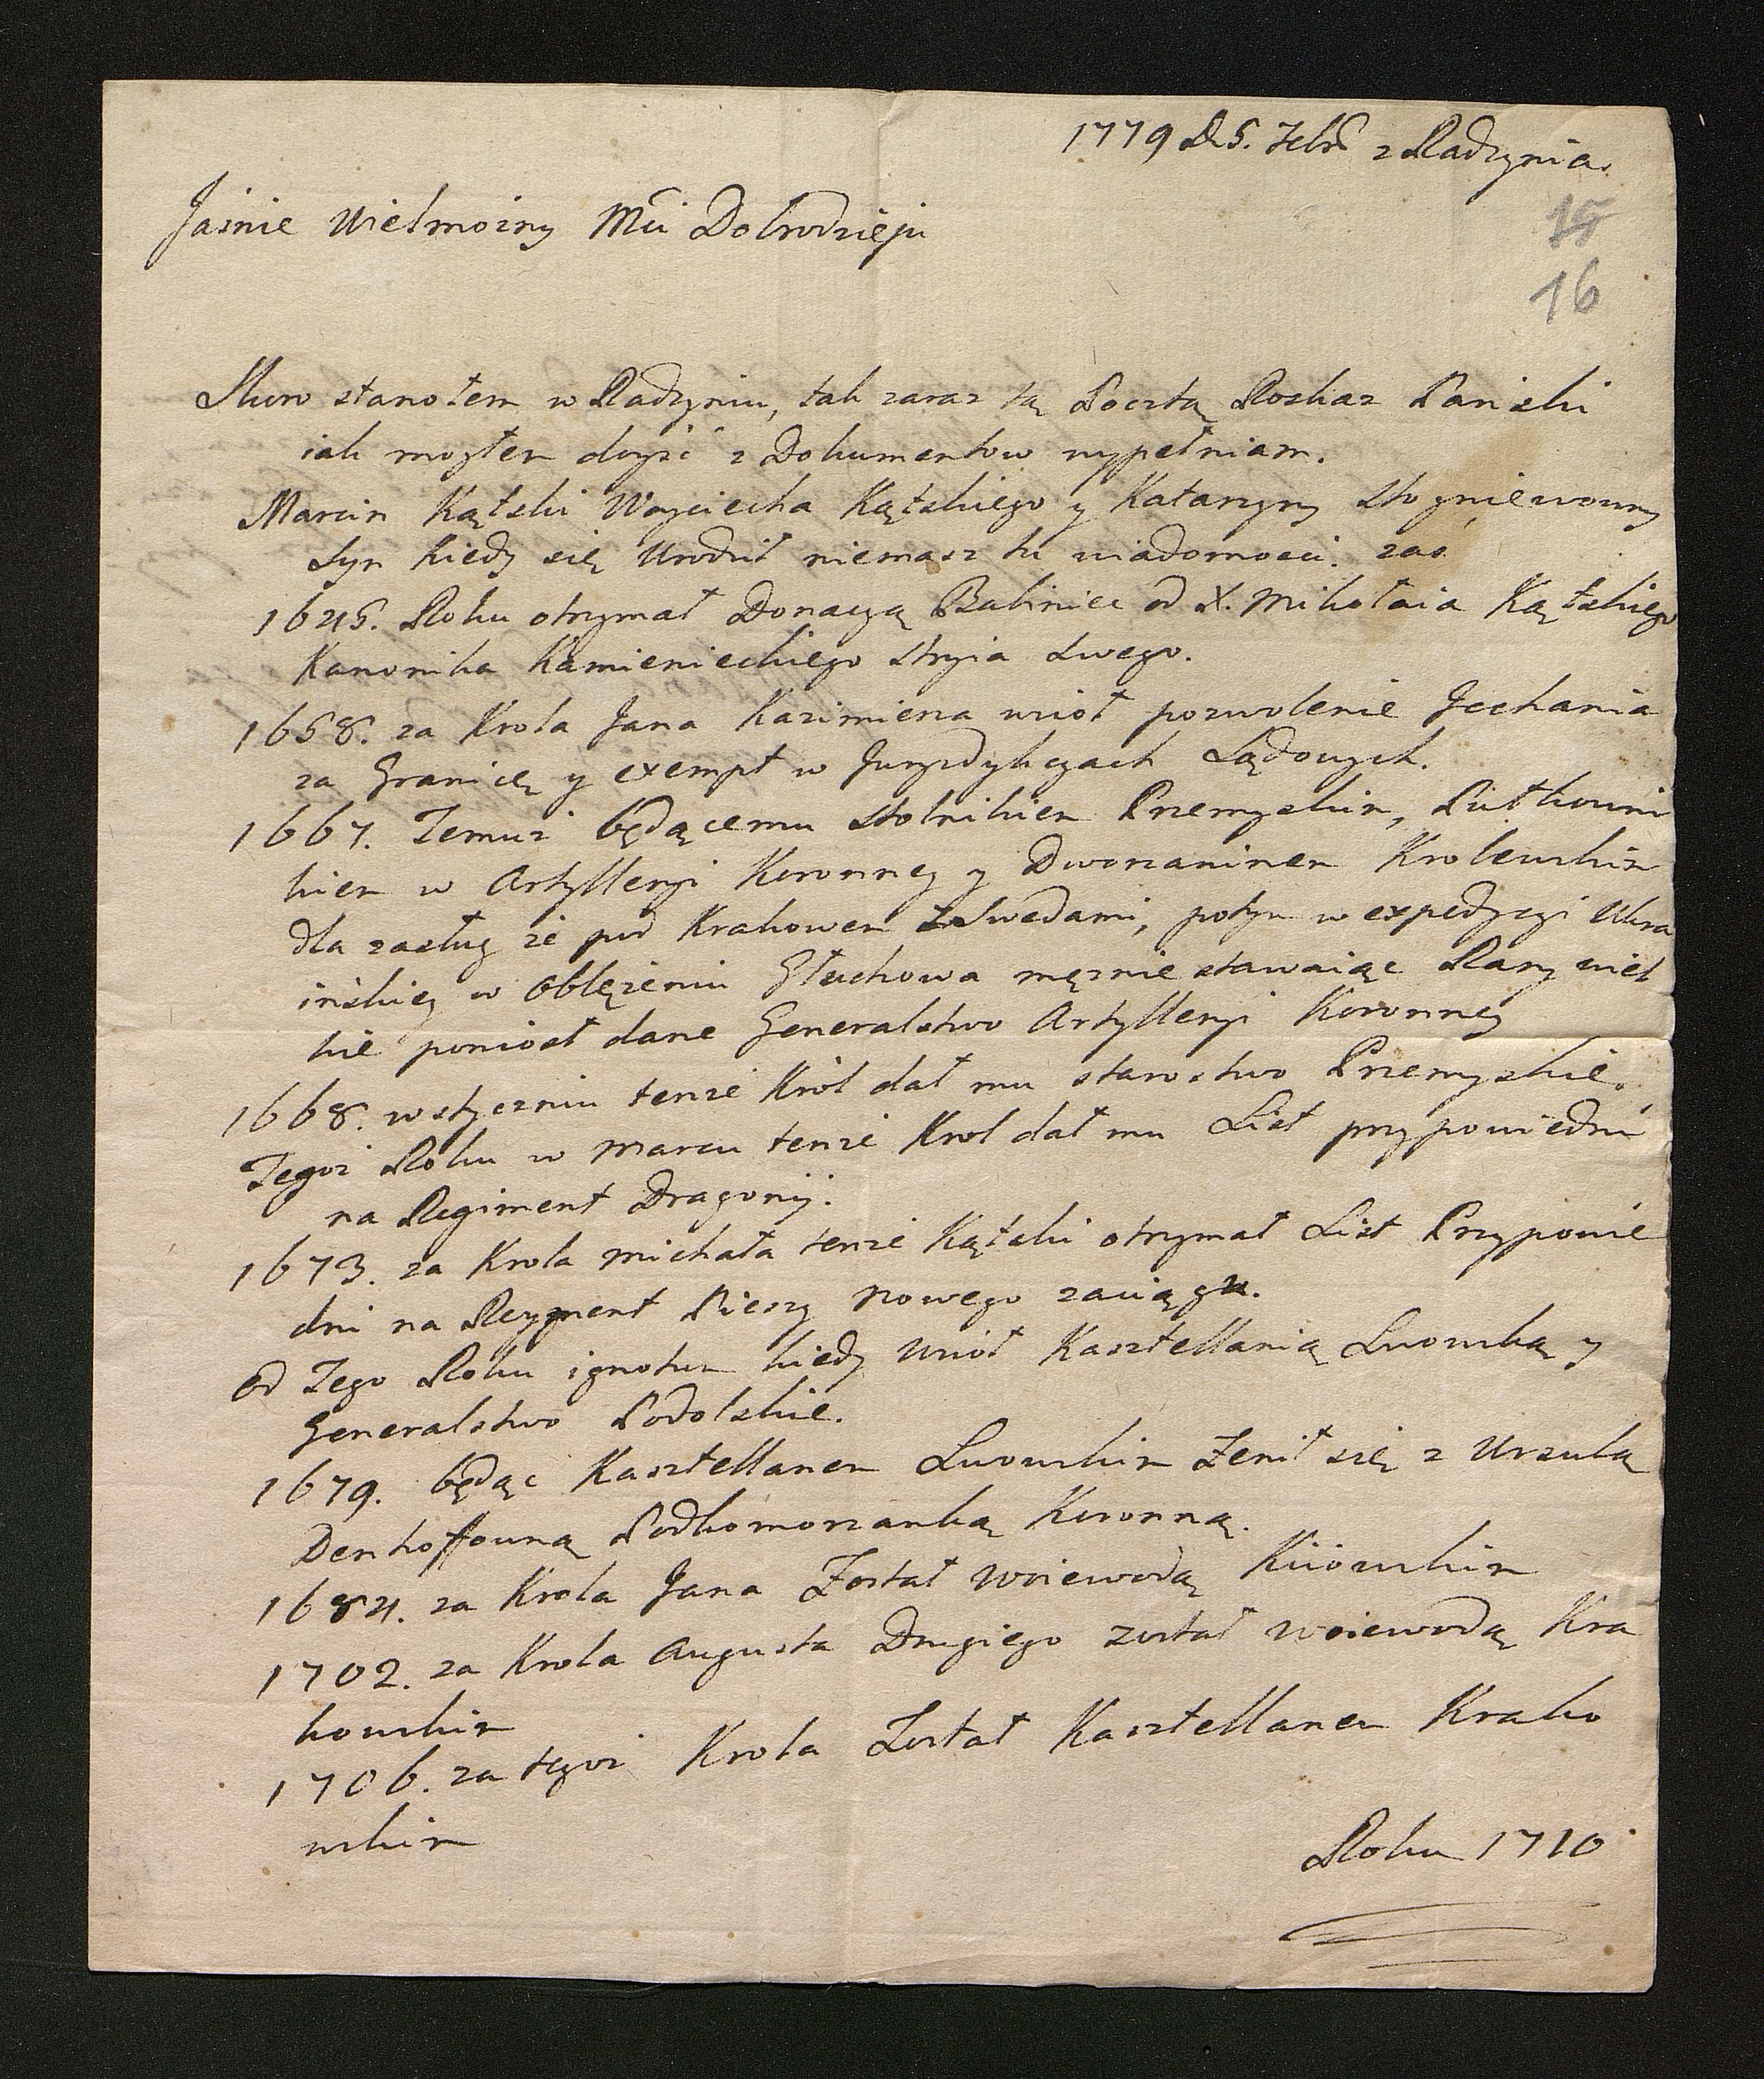 1779 D. 5. Febr z Radzynia.
15
16
Jaśnie Wielmożny Mci Dobrodzieju
Skoro stanołem w Radzyniu, tak zaraz tą Pocztą Rozkaz Panski
iak mogłem doyść z Dokumentow wypełniam.
Marcin Kątski Woyciecha Kątskiego y Katarzyny
Syn kiedy się Urodził niemasz tu wiadomosci. zaś
1645. Roku otrzymał Donacyą Babiniec od X. Mikołaia Kątskiego
Kanonika Kamienieckiego Stryia Swego.
1658. za Krola Jana Kazimierza wzioł pozwolenie Jechania
za Granicę y exempt w Juryzdykcyach Sądowych.
1667. Temuż będącemu Stolnikiem Przemyskim, Pułkowni
kiem w Artylleryi Koronney y Dworzaninem Krolewskim
dla zasług że pod Krakowem z Szwedami, potym w expedycyi Ukra
ińskiey w Oblężeniu Głuchowa mężnie stawaiąc Rany wiel
kie poniosł dane Generalstwo Artylleryi Koronney
1668. w styczniu tenże Król dał mu starostwo Przemyskie.
Tegoż Roku w Marcu tenże Krol dał mu List przypowiedni
na Regiment Dragonij.
1673. za Krola Michała tenże Kątski otrzymał List Przypowie
dni na Regiment Pieszy nowego zaciągu.
od Tego Roku ignotum kiedy Wzioł Kasztellanią Lwowską y
Generalstwo Podolskie.
1679. będąc Kasztellanem Lwowskim Żenił się z Urszulą
Denhoffowną Podkomorzanką Koronną.
1684. za Krola Jana Został Woiewodą Kiiowskim
1702. za Krola Augusta Drugiego został Woiewodą Kra
kowskim
1706. za tegoż Krola Został Kasztellanem Krako
wskim
Roku 1710